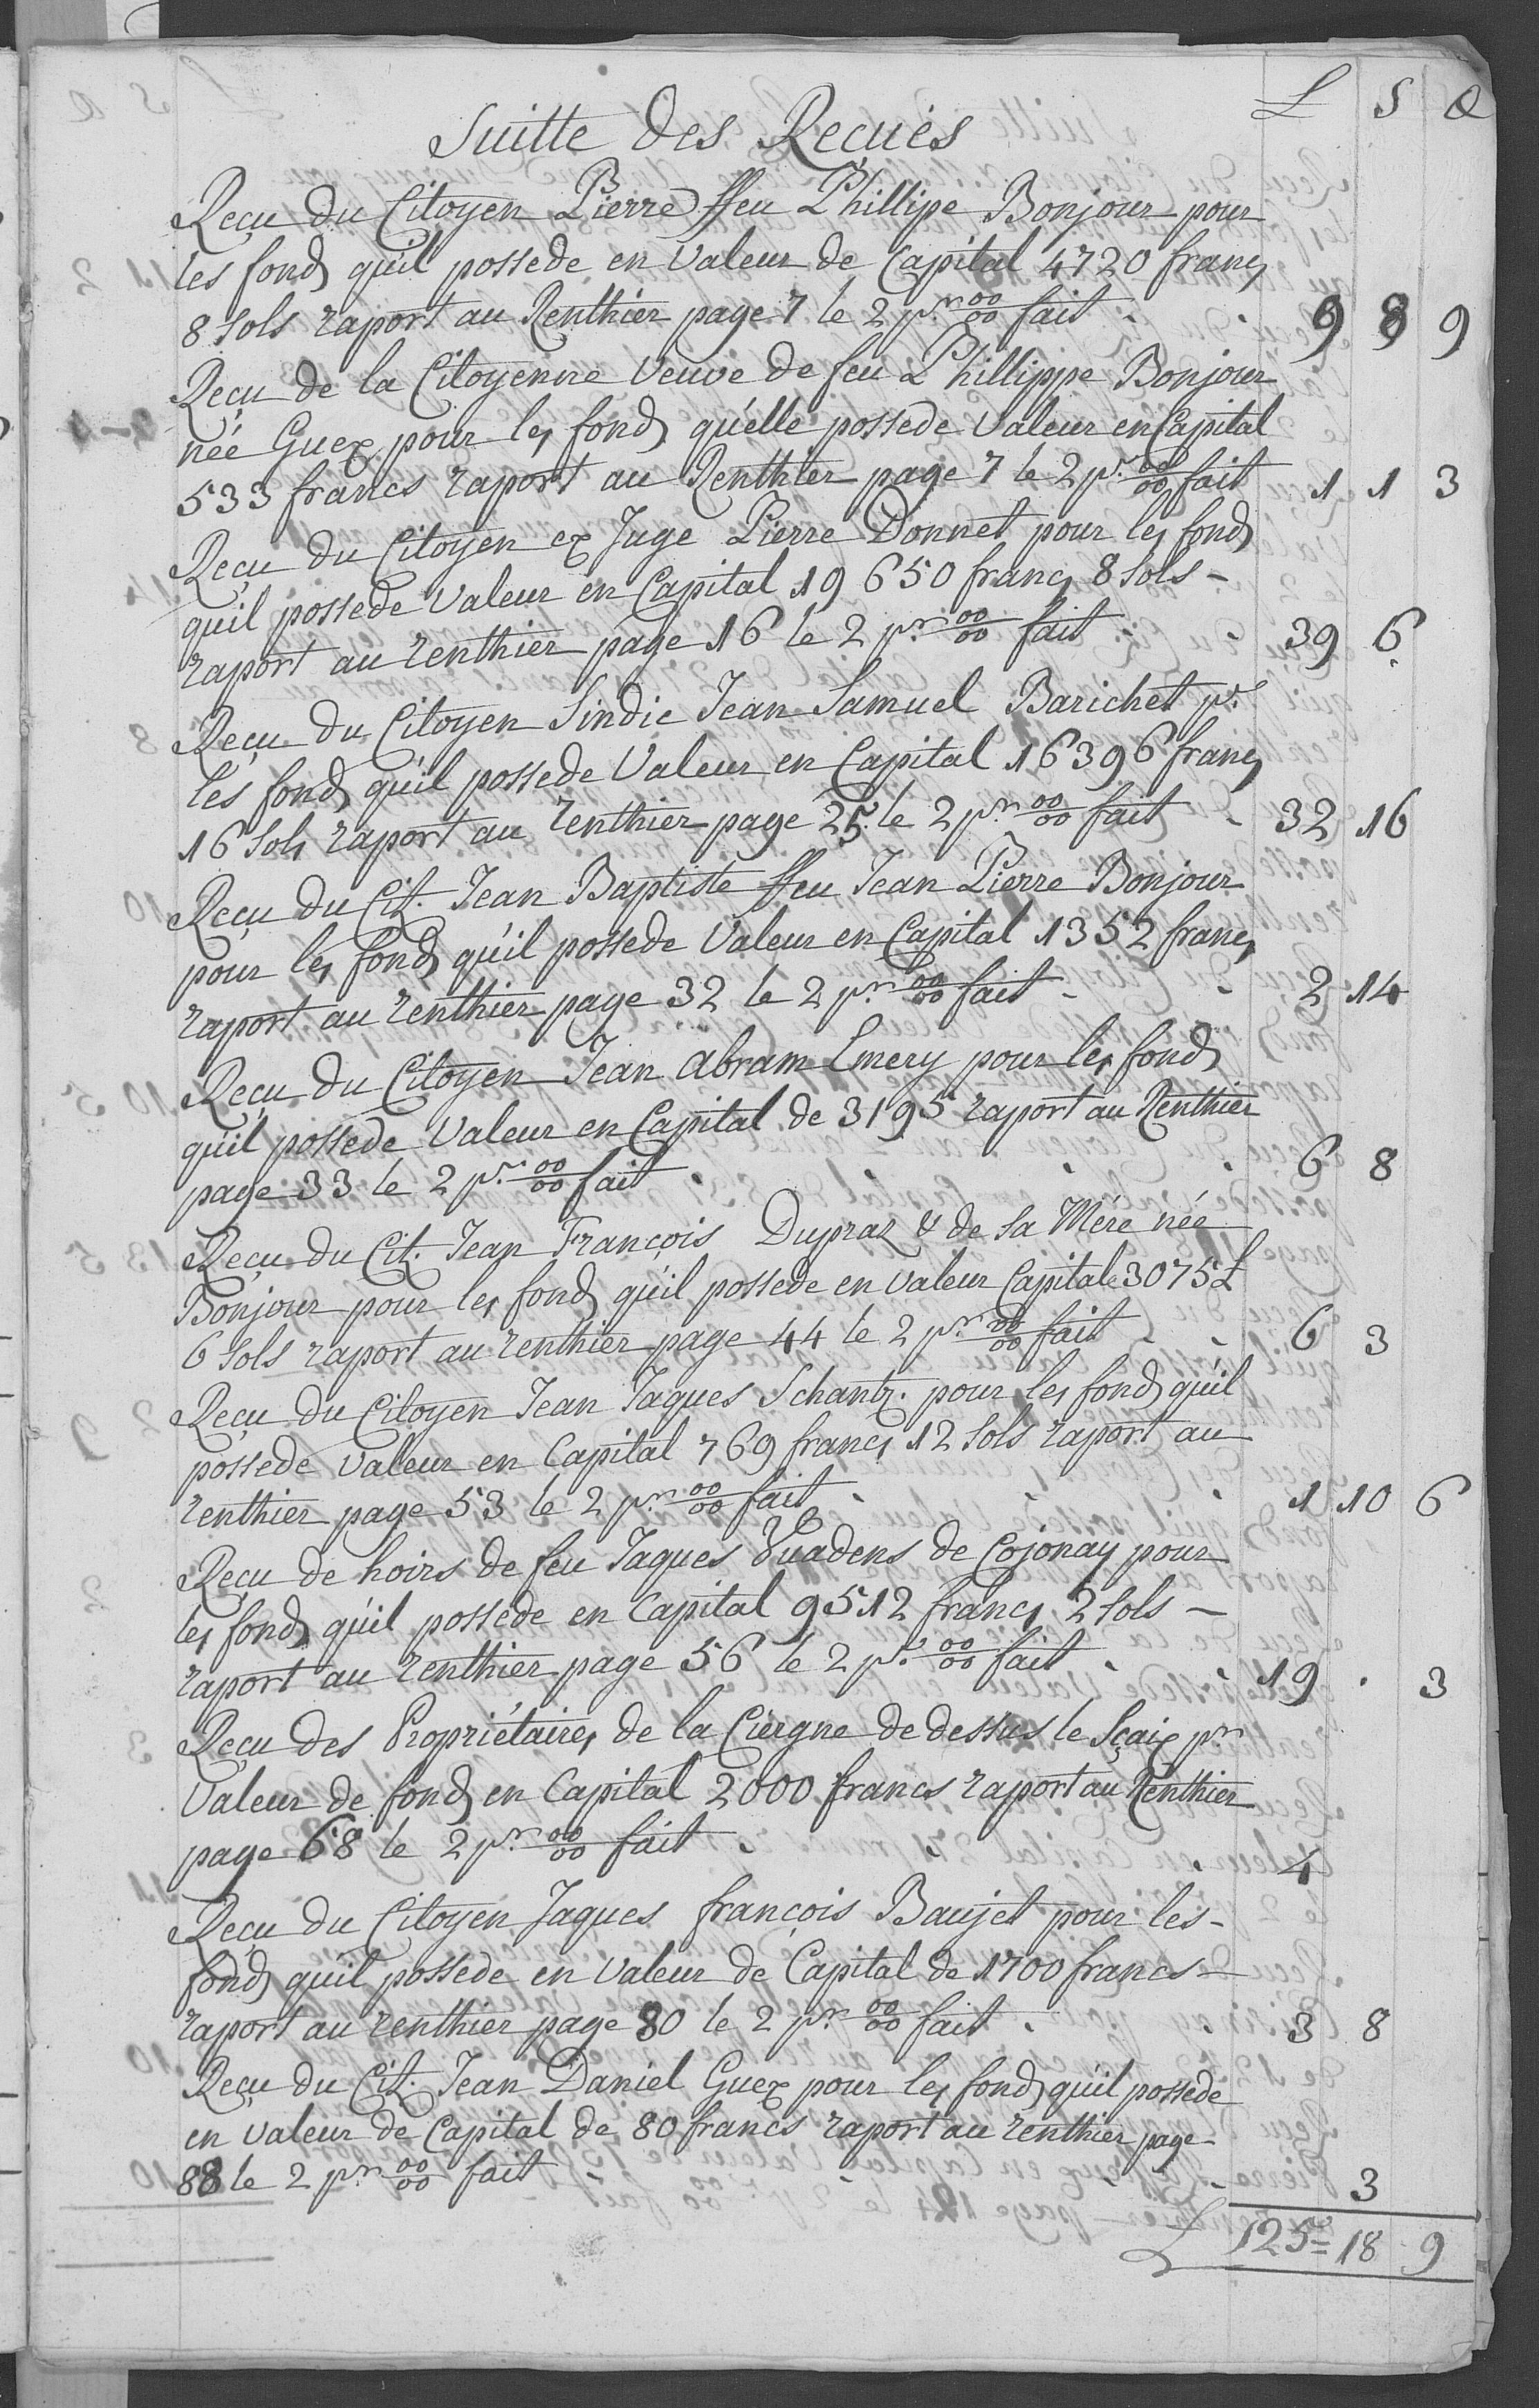 L S D
Suitte des Recües
Reçu du Citoyen Pierre ffeu Phillipe Bonjour pour
les fonds qu'il possede en Valeur de Capital 4720 francs
8 sols raport au Renthier page 7 le 2 pr 00/00 fait 9 8 9
Reçu de la Citoyenne Veuve de feu Phillippe Bonjour
née Guex pour les fonds qu'elle possede Valeur en Capital
533 francs raport au Renthier page 7 le 2 pr 00/00 fait 1 1 3
Reçu du Citoyen ex Juge Pierre Donnet pour les fonds
qu'il possede Valeur en Capital 19650 francs 8 sols -
raport au renthier page 16 le 2 pr 00/00 fait 39 6
Reçu du Citoyen Sindic Jean Samuel Barichet pr
les fonds qu'il possede Valeur en Capital 16396 francs
16 sols raport au renthier page 25. le 2 pr 00/00 fait 32 16
Reçu du Cit. Jean Baptiste ffeu Jean Pierre Bonjour
pour les fonds qu'il possede Valeur en Capital 1352 francs
raport au renthier page 32 le 2 pr 00/00 fait 2 14
Reçu du Citoyen Jean Abram Emery pour les fonds
qu'il possede Valeur en Capital de 3195 raport au Renthier
page 33 le 2 pr 00/00 fait 6 8
Reçu du Cit. Jean François Dupraz & de sa Mére née
Bonjour pour les fonds qu'il possede en valeur Capitale 3075 L
6 sols raport au renthier page 44 le 2 pr 00/00 fait 6 3
Reçu du Citoyen Jean Jaques Schantz. pour les fonds qu'il
possede valeur en Capital 769 francs 12 sols raport au
renthier page 53 le 2 pr 00/00 fait 1 10 6
Reçu de hoirs de feu Jaques Vuadens de Cojonay pour
les fonds qu'il possede en Capital 9512 francs 2 sols -
raport au renthier page 56 le 2 pr 00/00 fait 19 . 3
Reçu des Propriétaires de la Ciergne de dessus le Sçaix pr
Valeur de fonds en Capital 2000 francs raport au Renthier
page 68 le 2 pr 00/00 fait 4
Reçu du Citoyen Jaques françois Baujet pour les -
fonds qu'il possede en valeur de Capital de 1700 francs -
raport au renthier page 80 le 2 pr 00/00 fait 3 8
Reçu du Cit. Jean Daniel Guex pour les fonds qu'il possede
en valeur de Capital de 80 francs raport au renthier page
88 le 2 pr 00/00 fait 3
L 125 = 18 9